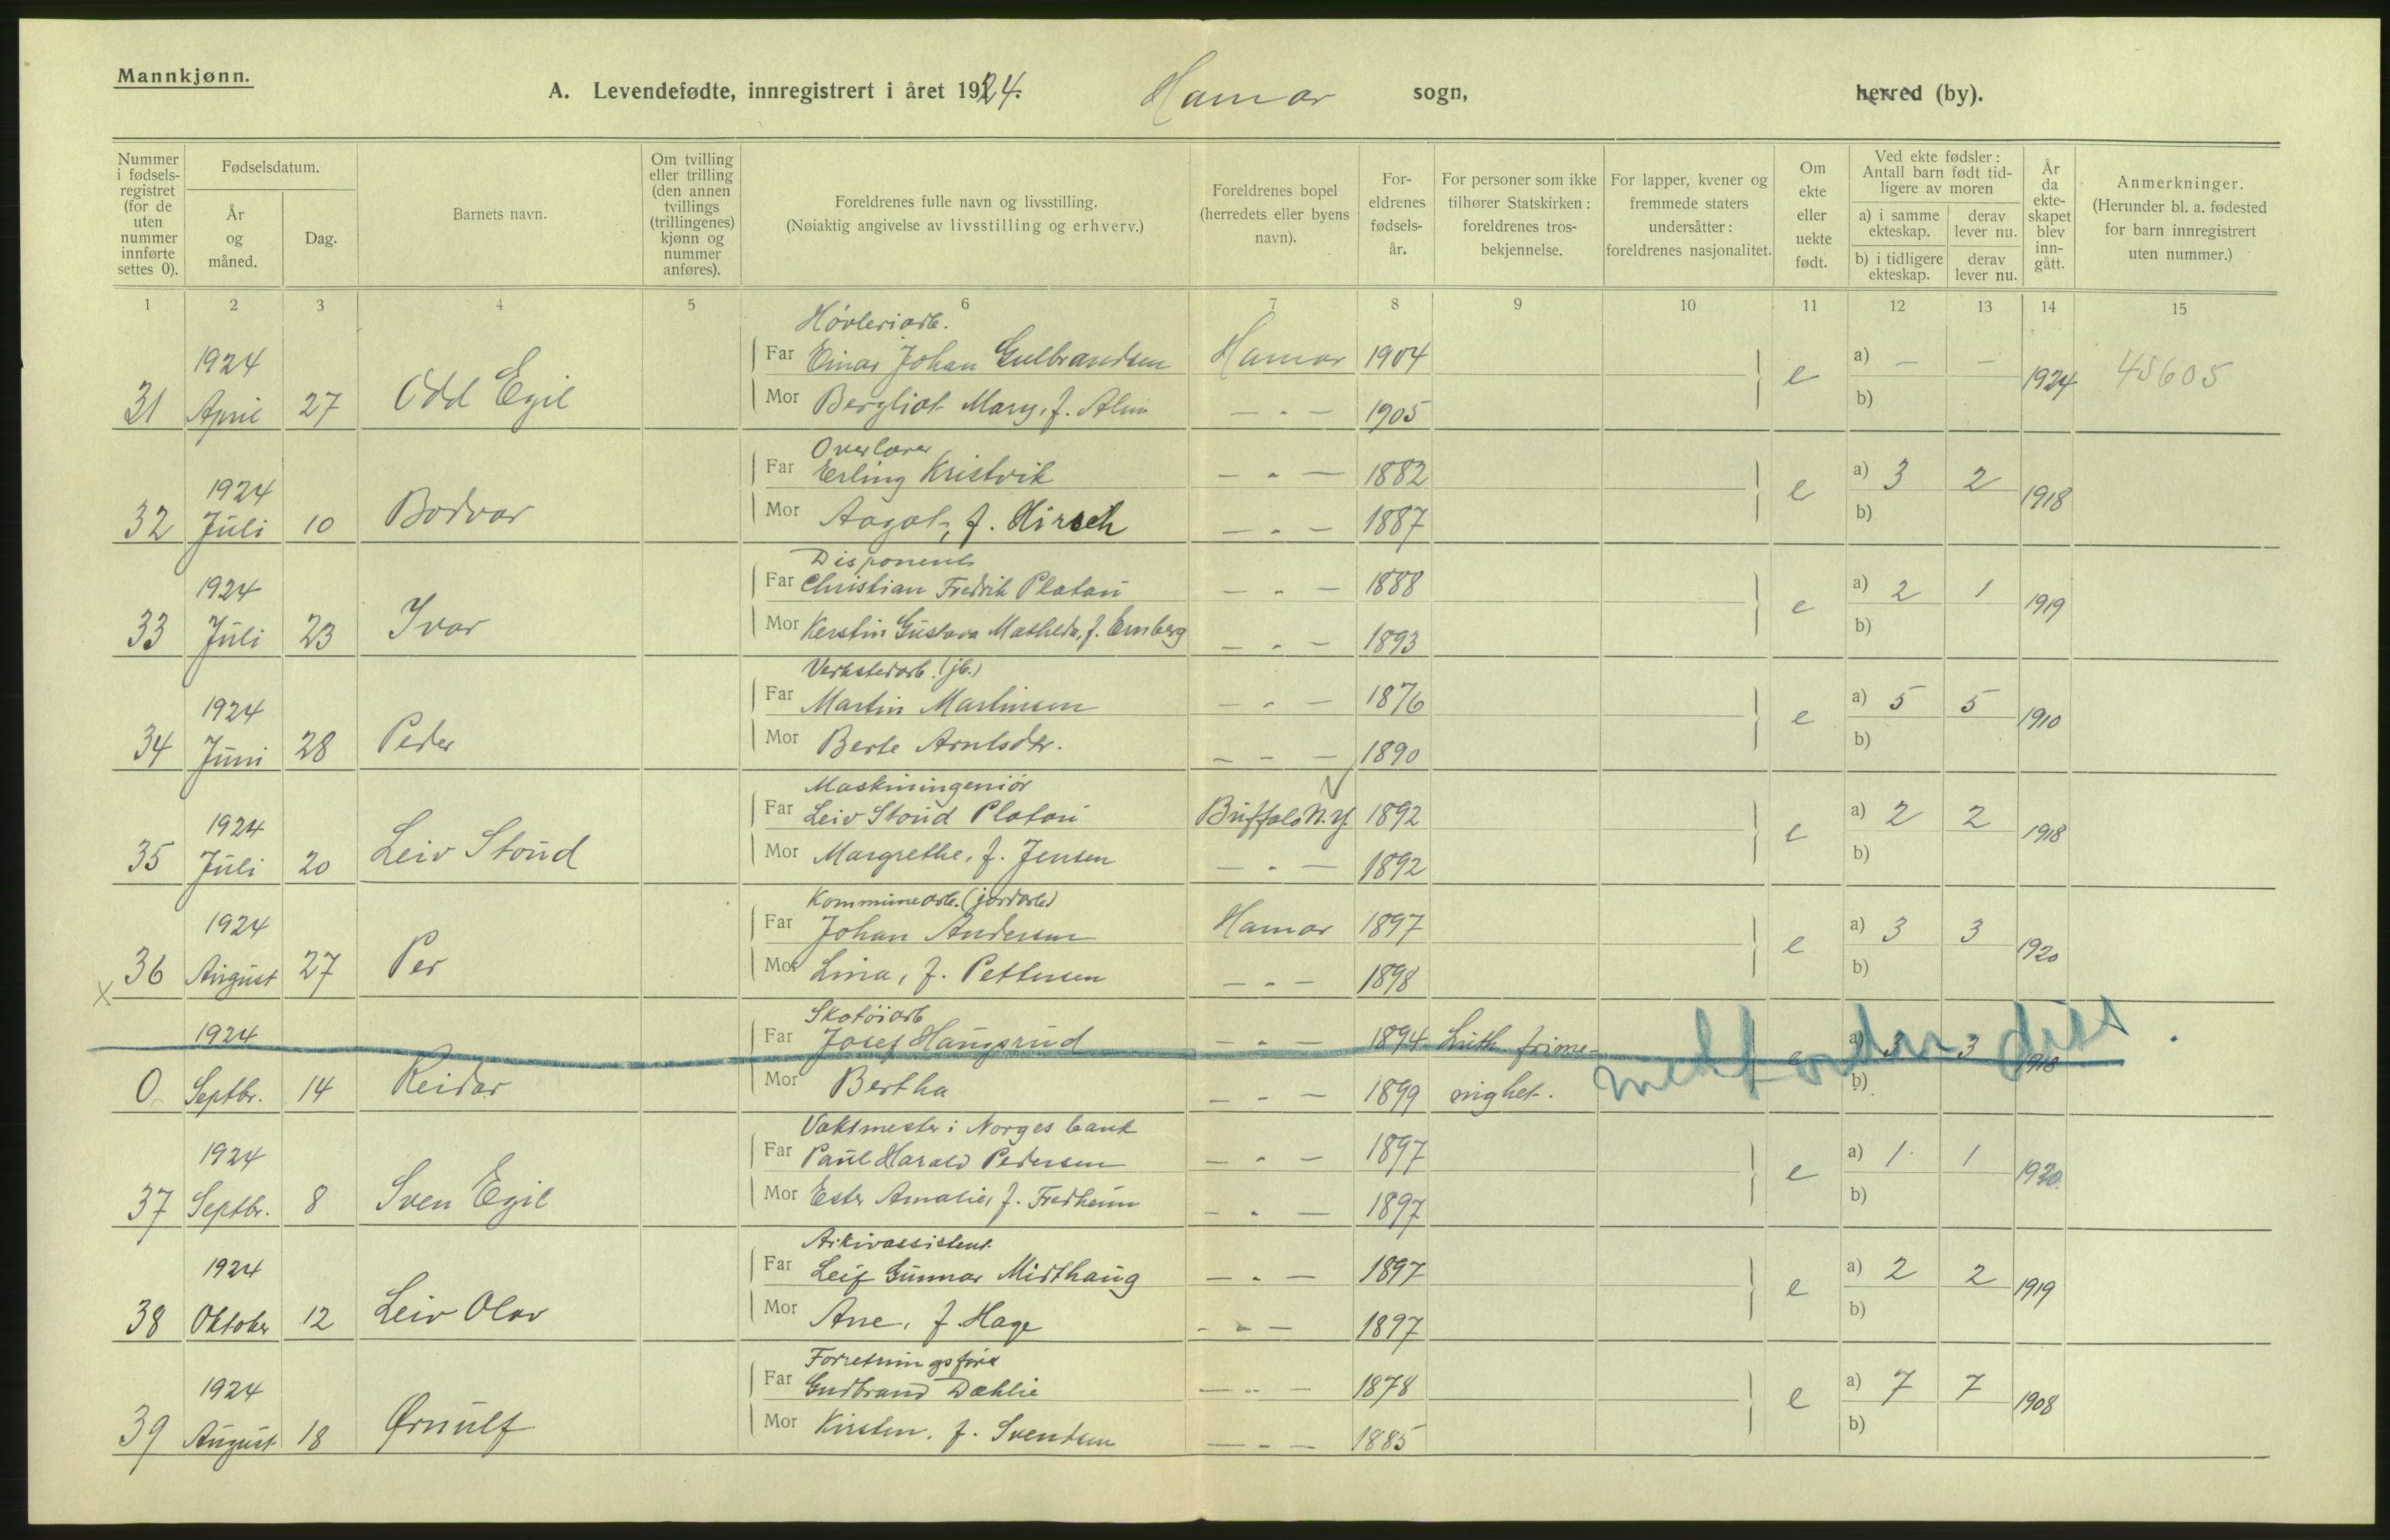 Mannkjønn.
A. Levendefødte, innregistrert i året 1924. Hamar sogn, herred (by).
Nummer i fødsels-registret (for de uten nummer innførte settes 0).
Fødselsdatum.
År og måned.
Dag.
Barnets navn.
Om tvilling eller trilling (den annen tvillings (trillingenes) kjønn og nummer anføres).
Foreldrenes fulle navn og livsstilling.
(Nøiaktig angivelse av livsstilling og erhverv.)
Foreldrenes bopel (herredets eller byens navn).
For-eldrenes fødsels-år.
For personer som ikke tilhører Statskirken: foreldrenes tros-bekjennelse.
For lapper, kvener og fremmede staters undersåtter: foreldrenes nasjonalitet.
Om ekte eller uekte født.
Ved ekte fødsler: Antall barn født tid-ligere av moren
a) i samme ekteskap. derav lever nu.
b) i tidligere ekteskap. derav lever nu.
År da ekte-skapet blev inn-gått.
Anmerkninger.
(Herunder bl. a. fødested for barn innregistrert uten nummer.)
1 2 3 4 5 6 7 8 9 10 11 12 13 14 15
Høvleriarb.
1924 Far Einar Johan Gulbrandsen Hamar 1904 a) — —
31 April 27 Odd Egil e 1924 45605
Mor Bergliot Mary, f. Alm — " — 1905 b)
Overlærer
1924 Far Erling Kristvik — " — 1882 a) 3 2
32 Juli 10 Bodvar e 1918
Mor Aagot, f. Hirsch — " — 1887 b)
Disponent
1924 Far Christian Fredrik Platou — " — 1888 a) 2 1
33 Juli 23 Ivar e 1919
Mor Kerstin Gustava Mathilda, f. Ernberg — " — 1893 b)
Verkstedarb. (jb.)
1924 Far Martin Martinsen — " — 1876 a) 5 5
34 Juni 28 Peder e 1910
Mor Berte Arntsdtr. — " — 1890 b)
Maskiningeniør
1924 Far Leiv Stoud Platou Buffalo N.Y. 1892 a) 2 2
35 Juli 20 Leiv Stoud e 1918
Mor Margrethe, f. Jensen — " — 1892 b)
Kommunearb. (jordarb.)
1924 Far Johan Andersen Hamar 1897 a) 3 3
36 August 27 Per e 1920
Mor Lina, f. Pettersen — " — 1898 b)
x
Skotøiarb
1924 Far Josef Haugsrud — " — 1894 Luth. frime- e a) 3 3 1918
0 Septbr. 14 Reidar
Mor Bertha — " — 1899 nighet. b)
Vaktmester i Norges bank
1924 Far Paul Harald Pedersen — " — 1897 a) 1 1
37 Septbr. 8 Sven Egil e 1920.
Mor Ester Amalie, f. Fredheim — " — 1897 b)
Arkivassistent.
1924 Far Leif Gunnar Midthaug — " — 1897 a) 2 2
38 Oktober 12 Leiv Olav e 1919
Mor Ane, f. Hage — " — 1897 b)
Forretningsfører
1924 Far Gudbrand Dæhlie — " — 1878 a) 7 7
39 August 18 Ørnulf e 1908
Mor Kirsten, f. Svendsen — " — 1885 b)